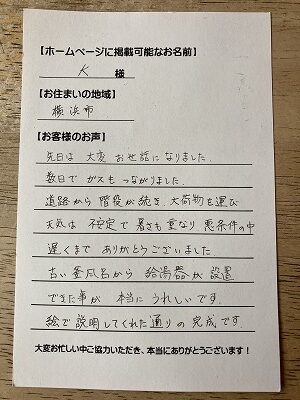 【ホームページに掲載可能なお名前】
K 様
【お住まいの地域】
横浜市
【お客様のお声】
先日は 大変 お世話になりました.
数日で ガスも つながりました.
道路から 階段が続き、大荷物を運び
天気は 不安定で 暑さも重なり 悪条件の中
遅くまで ありがとうございました
古い 釜風呂から 給湯器が 設置
できた事が 本当に うれしいです.
絵で説明してくれた通りの 完成です
大変お忙しい中ご協力いただき、本当にありがとうございます！